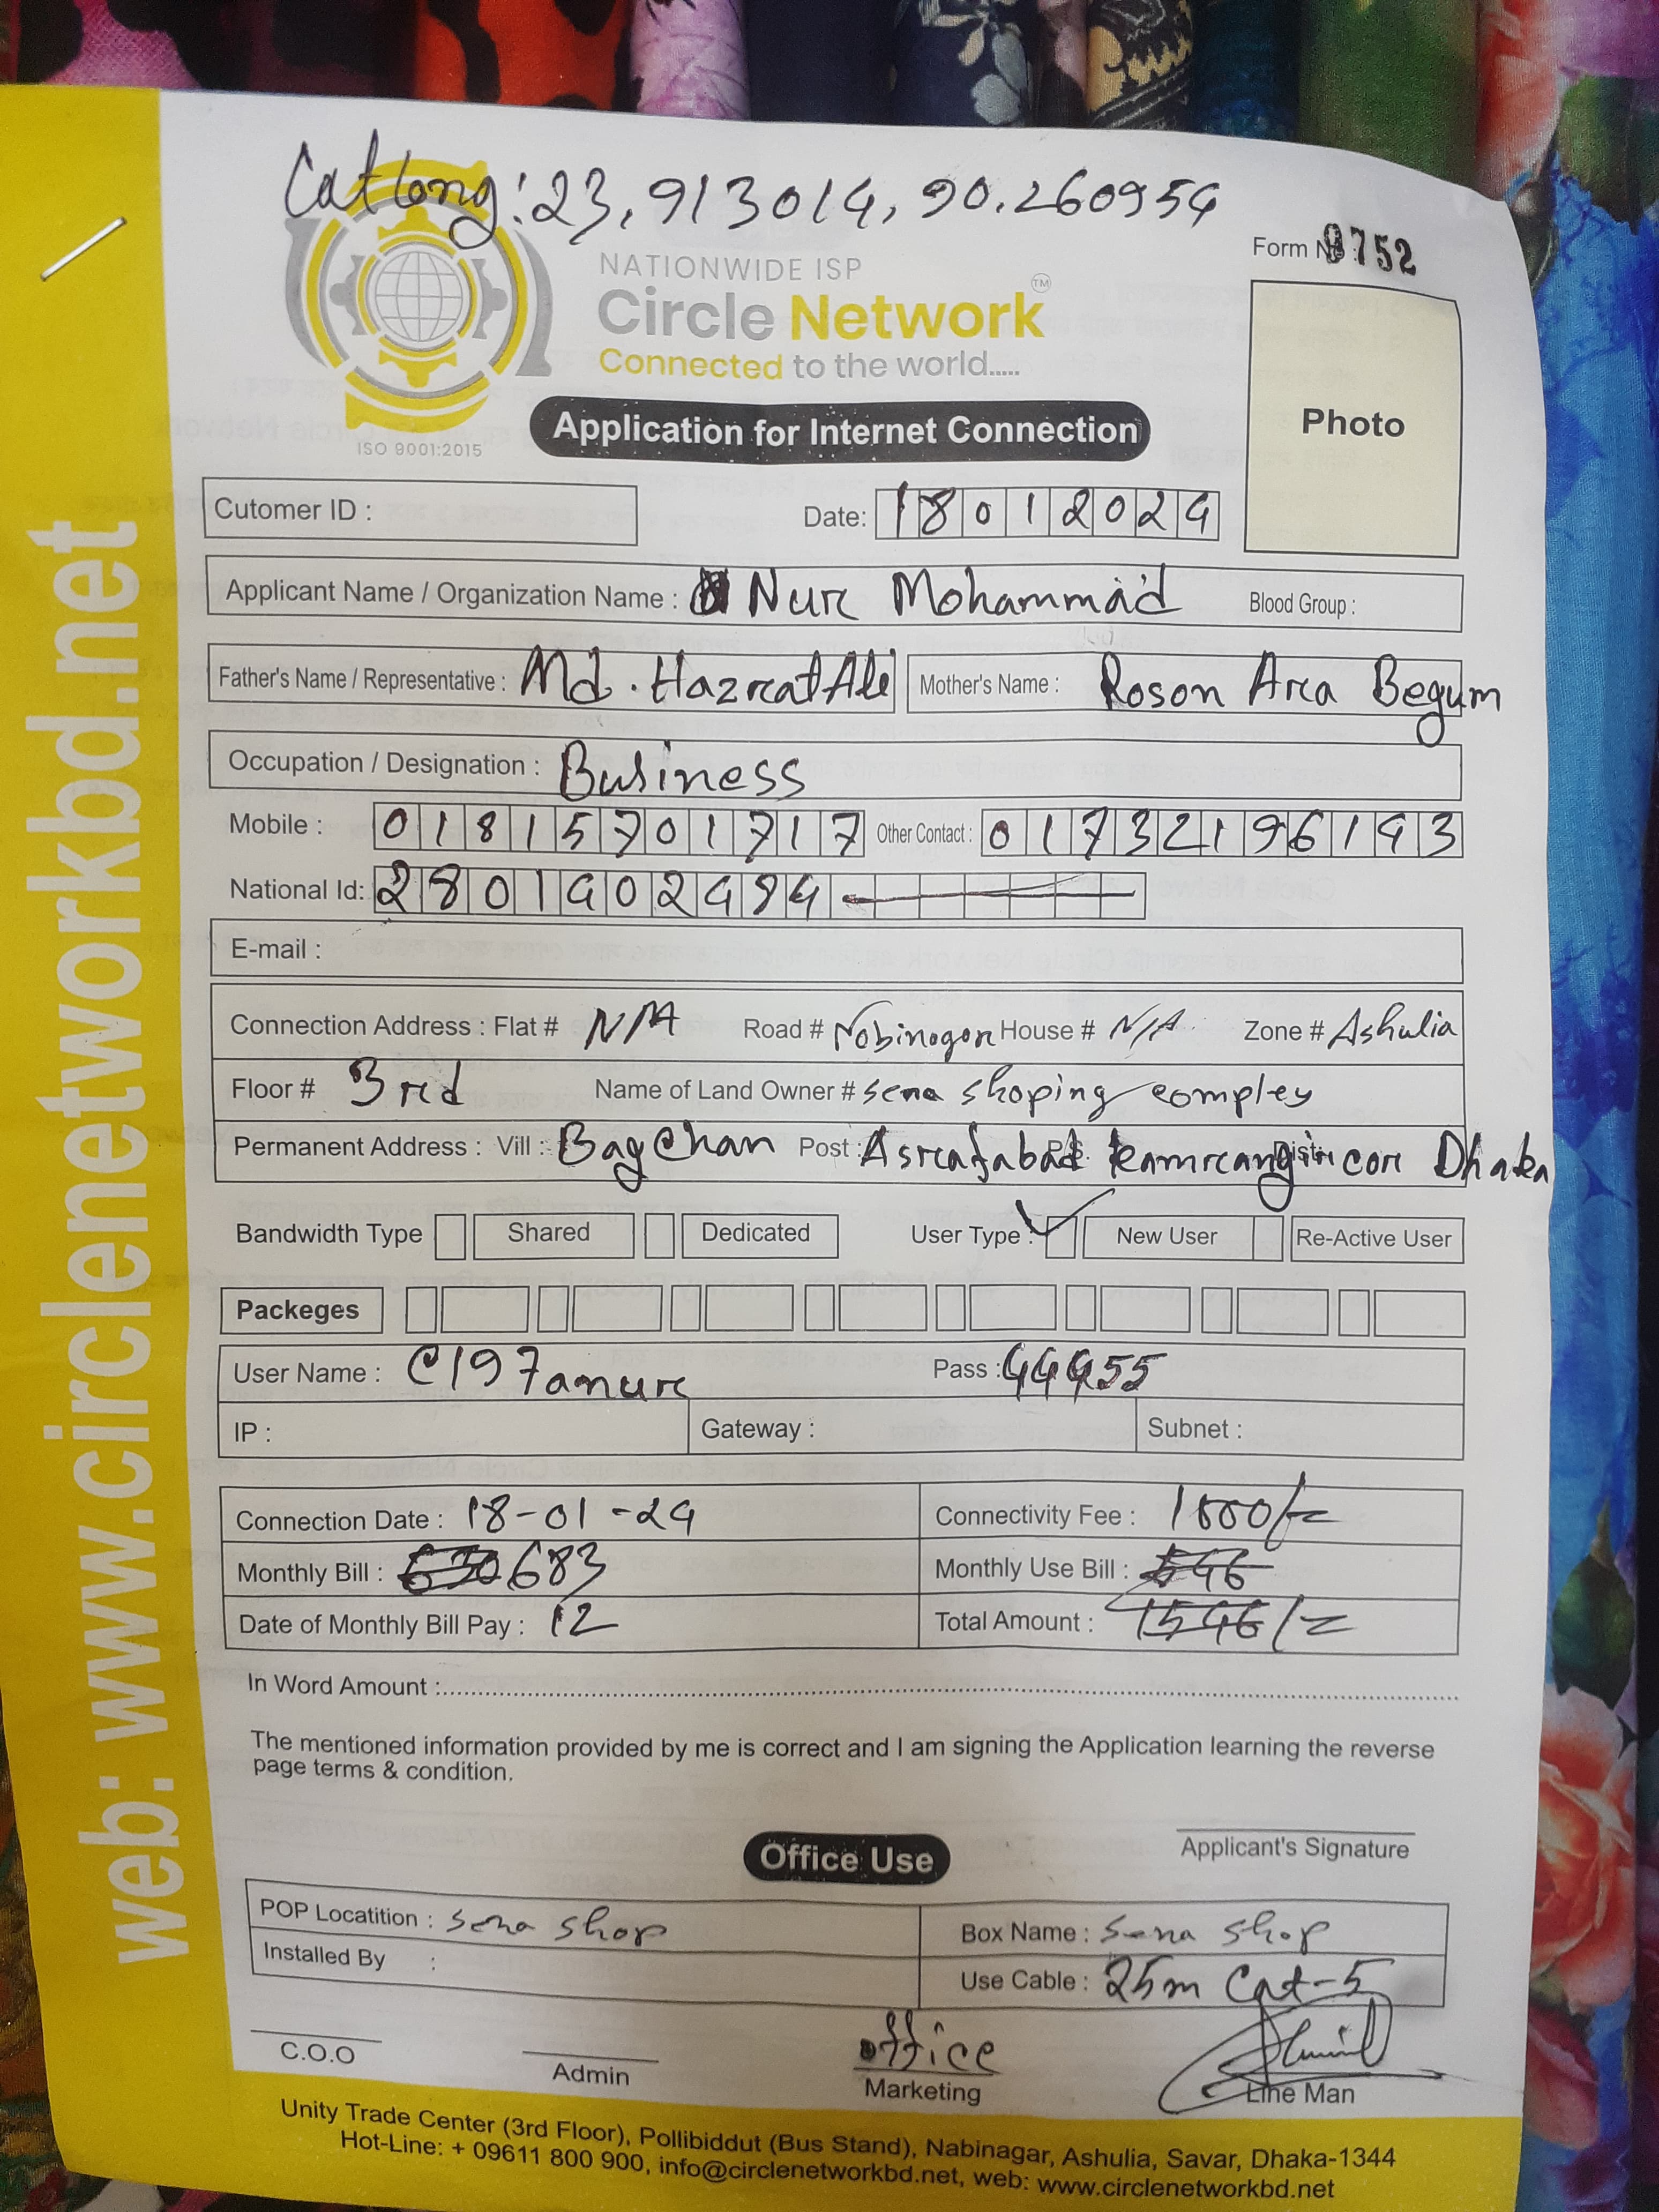 Catlong: 23.913014, 90.260954
Form No 9752
NATIONWIDE ISP
Circle Network TM
Connected to the world.....
ISO 9001:2015
Application for Internet Connection
Photo
Cutomer ID :
Date: 18012024
Applicant Name / Organization Name : Nur Mohammad Blood Group :
Father's Name / Representative : Md. Hazrat Ali Mother's Name : Roson Ara Begum
Occupation / Designation : Business
Mobile : 01815701717 Other Contact : 01732196143
National Id: 2801402494
E-mail :
Connection Address : Flat # N/A Road # Nobinogor House # N/A Zone # Ashulia
Floor # 3rd Name of Land Owner # Sena shoping complex
Permanent Address : Vill : Bagchan Post : Asrafabad P.S. kamrangir cor Dist: Dhaka
Bandwidth Type Shared Dedicated User Type : New User Re-Active User
Packeges
User Name : C197anur Pass : 44455
IP : Gateway : Subnet :
Connection Date : 18-01-24 Connectivity Fee : 1000/=
Monthly Bill : 683 Monthly Use Bill :
Date of Monthly Bill Pay : 12 Total Amount : 1546/=
In Word Amount :
The mentioned information provided by me is correct and I am signing the Application learning the reverse
page terms & condition.
Applicant's Signature
Office Use
POP Locatition : Sena shop Box Name : Sena shop
Installed By : Use Cable : 25m Cat-5
C.O.O Admin office Marketing Line Man
Unity Trade Center (3rd Floor), Pollibiddut (Bus Stand), Nabinagar, Ashulia, Savar, Dhaka-1344
Hot-Line: + 09611 800 900, info@circlenetworkbd.net, web: www.circlenetworkbd.net
web: www.circlenetworkbd.net